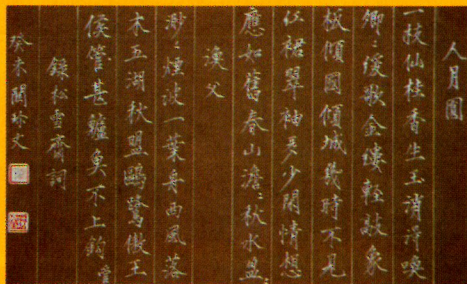 人月圓
一枝仙桂香生玉消得喚
卿〻緩歌金縷輕敲象
板傾國傾城幾時不見
紅裙翠袖多少閒情想
應如舊春山澹〻秋水盈〻
漁父
渺〻煙波一葉舟西風落
木五湖秋盟鷗鷺傲王
侯管甚鱸魚不上鉤
錄松雪齋詞
癸未